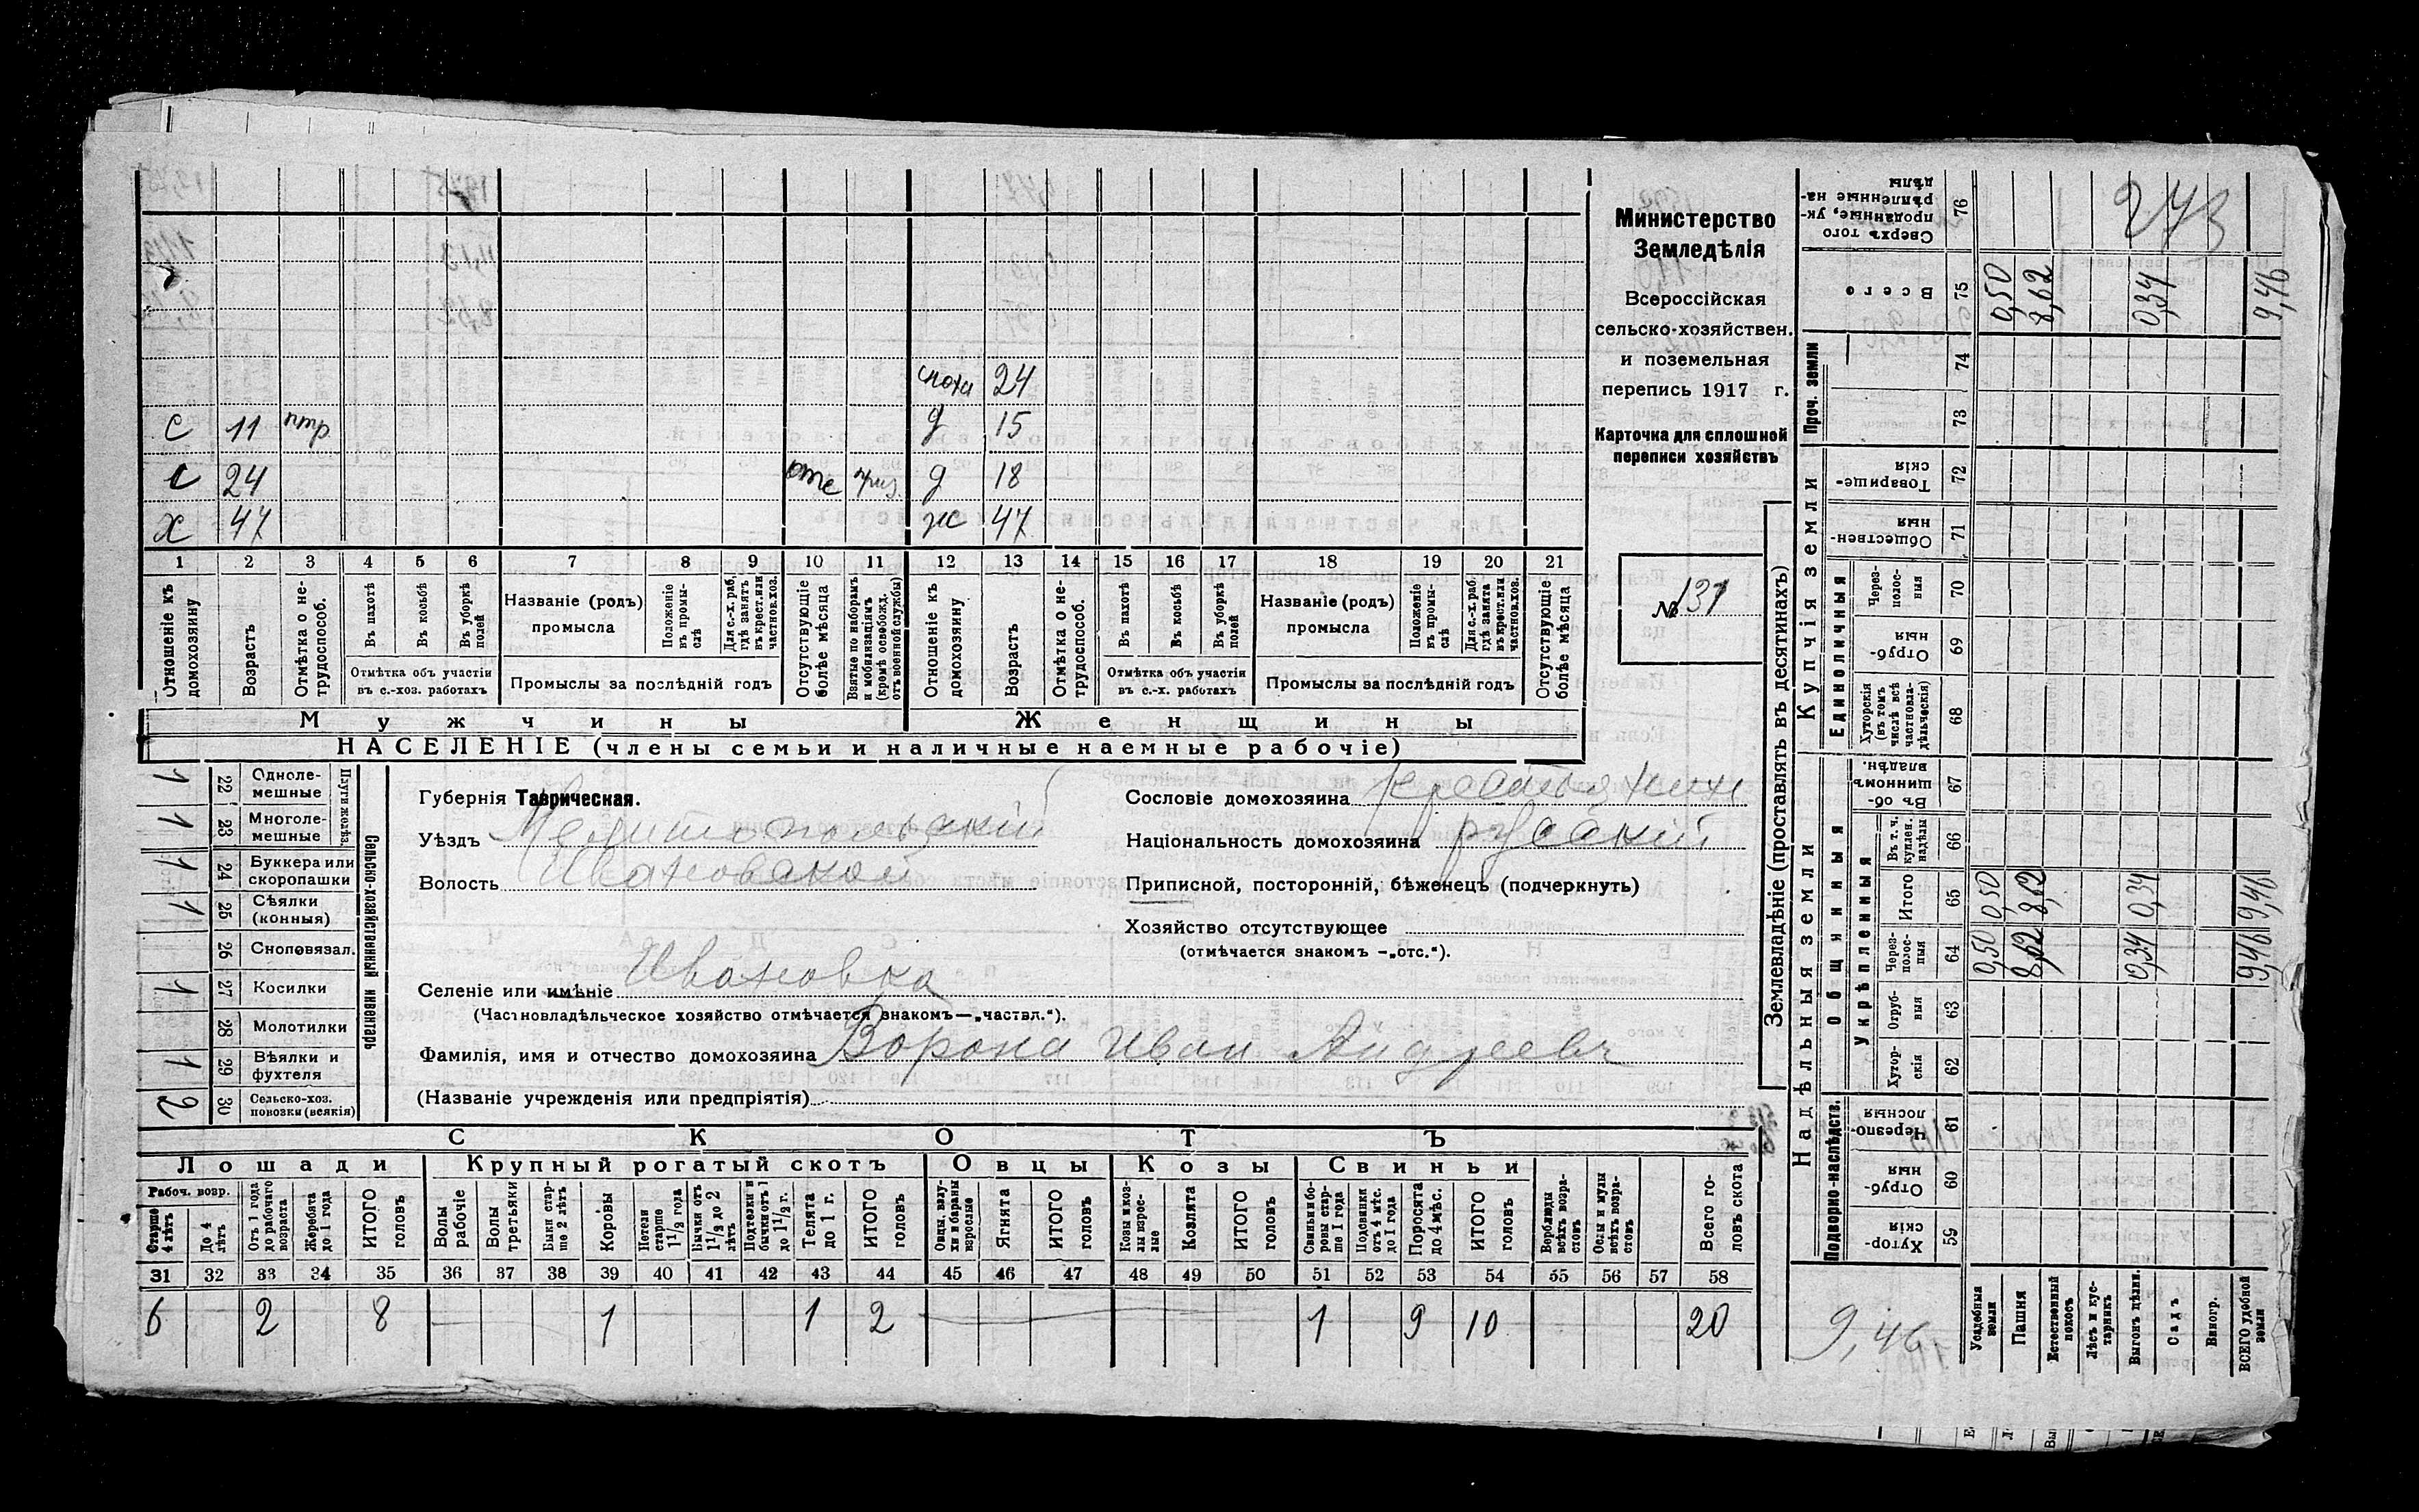 Министерство
Земледѣлія
Всероссійская
сельско-хозяйствен.
и поземельная
перепись 1917 г.
Карточка для сплошной
переписи хозяйствъ
№ 131
24
с 11 д 15
с 24 отс д 18
х 47 ж 47
1 2 3 4 5 6 7 8 9 10 11 12 13 14 15 16 17 18 19 20 21
Отношеніе къ домохозяину
Возрастъ
Отмѣтка о не-трудоспособ.
Въ пахотѣ
Въ косьбѣ
Въ уборкѣ полей
Отмѣтка объ участіи
въ с.-хоз. работахъ
Названіе (родъ)
промысла
Положеніе въ промы-слѣ
Для с.-х. раб. гдѣ занятъ въ крест. или частнов. хоз.
Промыслы за послѣдній годъ
Отсутствующіе болѣе мѣсяца
Взятые по наборамъ и мобилизаціямъ (кромѣ освобожд. отъ военной службы)
Отношеніе къ домохозяину
Возрастъ
Отмѣтка о не-трудоспособ.
Въ пахотѣ
Въ косьбѣ
Въ уборкѣ полей
Отмѣтка объ участіи
въ с.-х. работахъ
Названіе (родъ)
промысла
Положеніе въ промы-слѣ
Для с.-х. раб. гдѣ занята въ крест. или частнов. хоз.
Промыслы за послѣдній годъ
Отсутствующіе болѣе мѣсяца
Мужчины Женщины
НАСЕЛЕНІЕ (члены семьи и наличные наемные рабочіе)
Сельско-хозяйственный инвентарь
Плуги желѣз.
1 22 Одноле-мешные
1 23 Многоле-мешные
1 24 Буккера или скоропашки
1 25 Сѣялки (конныя)
26 Сноповязал.
1 27 Косилки
28 Молотилки
1 29 Вѣялки и фухтеля
2 30 Сельско-хоз. повозки (всякія)
Губернія Таврическая.
Уѣздъ Мелитопольскій
Волость Ивановской
Сословіе домохозяина крестьянинъ
Національность домохозяина русскій
Приписной, посторонній, бѣженецъ (подчеркнуть)
Хозяйство отсутствующее
(отмѣчается знакомъ -„отс.“).
Селеніе или имѣніе Ивановка
(Частновладѣльческое хозяйство отмѣчается знакомъ—„частвл.“).
Фамилія, имя и отчество домохозяина Ворона Иван Андреевъ
(Названіе учрежденія или предпріятія)
СКОТЪ
Лошади Крупный рогатый скотъ Овцы Козы Свиньи
Рабоч. возр.
Старше 4 лѣтъ
До 4 лѣтъ
Отъ 1 года до рабочаго возраста
Жеребята до 1 года
ИТОГО головъ
Волы рабочіе
Волы третьяки
Быки стар-ше 2 лѣтъ
Коровы
Нетели старше 1 1/2 года
Бычки отъ 1 1/2 до 2 лѣтъ
Подтелки и бычки отъ 1 до 1 1/2 г.
Телята до 1 г.
ИТОГО головъ
Овцы, валу-хи и бараны взрослые
Ягнята
ИТОГО головъ
Козы и коз-лы взрос-лые
Козлята
ИТОГО головъ
Свиньи и бо-ровы стар-ше 1 года
Подсвинки отъ 4 мѣс. до 1 года
Поросята до 4 мѣс.
ИТОГО головъ
Верблюды всѣхъ возра-стовъ
Ослы и мулы всѣхъ возра-стовъ
Всего го-ловъ скота
31 32 33 34 35 36 37 38 39 40 41 42 43 44 45 46 47 48 49 50 51 52 53 54 55 56 57 58
6 2 8 1 1 2 1 9 10 20
Землевладѣніе (проставлять въ десятинахъ)
Надѣльныя земли Купчія земли Проч. земли
Подворно-наслѣдств. Общинныя Единоличныя
Укрѣпленныя
Хутор-скія 59
Отруб-ныя 60
Черезпо-лосныя 61
Хутор-скія 62
Отруб-ныя 63
Через-полос-ныя 64 0,50 8,62 0,34 9,46
Итого 65 0,50 8,62 0,34 9,46
Въ т. ч. куплен. надѣлы 66
Въ об-щинномъ владѣн. 67
Хуторскія (въ томъ числѣ всѣ частновла-дѣльческія) 68
Отруб-ныя 69
Через-полос-ныя 70
Обществен-ныя 71
Товарище-скія 72
73
74
Всего 75 0,50 8,62 0,34 9,46
Сверхъ того проданные, ук-рѣпленные на-дѣлы 76
273
9,46
Усадебныя земли
Пашня
Естественный покосъ
Лѣсъ и кус-тарникъ
Выгонъ цѣлин.
Садъ
Виногр.
ВСЕГО удобной земли